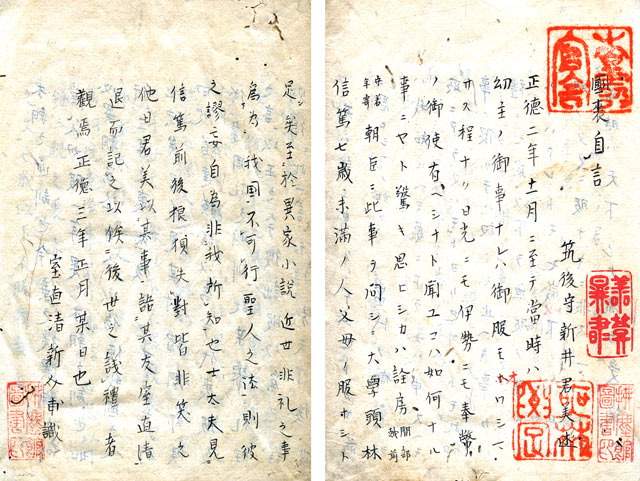 國喪自言
筑後守新井君美述
正德二年十一月ニ至テ當時ハ
幼主ノ御事ナレハ御服モ
サス程ナリ日光ニモ伊勢ニモ奉幣
ノ御使有ヘシナト聞エコハ如何ナル
事ニヤト驚キ思ヒシカハ詮房
朝臣ニ此事ヲ問シニ大學頭林
信篤七歳未滿ノ人父母ノ服ナシト
足矣至於異家小説近世非礼之事
為我國不可行聖人之法則彼
之謬妄自為非我所知也士大夫見
信篤前後狼狽失對皆非笑之
他日君美以其事語其友室直清
退而記之以俟後世之議禮者
觀焉正德三年正月某日也
室直清新父甫識